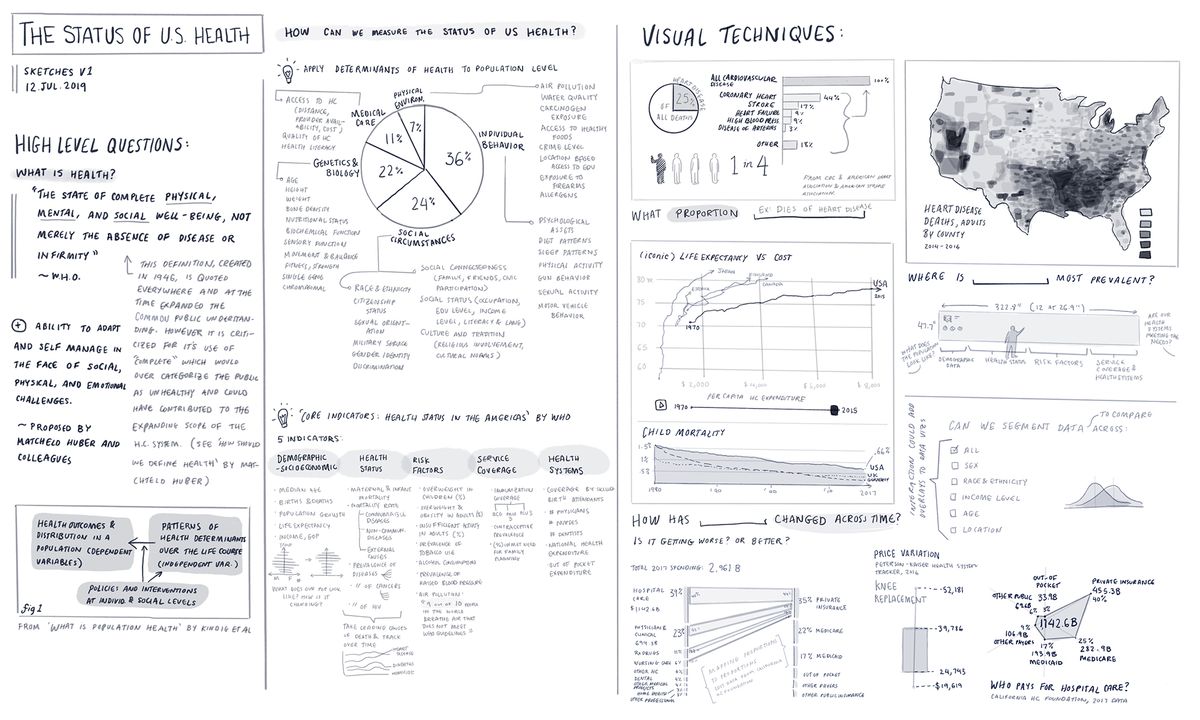 THE STATUS OF U.S. HEALTH
SKETCHES V1
12.JUL.2019
HIGH LEVEL QUESTIONS:
WHAT IS HEALTH?
"THE STATE OF COMPLETE PHYSICAL,
MENTAL, AND SOCIAL WELL-BEING, NOT
MERELY THE ABSENCE OF DISEASE OR
INFIRMITY"
~ W.H.O.
THIS DEFINITION, CREATED
IN 1946, IS QUOTED
EVERYWHERE AND AT THE
TIME EXPANDED THE
COMMON PUBLIC UNDERSTAN-
DING. HOWEVER IT IS CRITI-
CIZED FOR IT'S USE OF
"COMPLETE" WHICH WOULD
OVER CATEGORIZE THE PUBLIC
AS UNHEALTHY AND COULD
HAVE CONTRIBUTED TO THE
EXPANDING SCOPE OF THE
H.C. SYSTEM. (SEE 'HOW SHOULD
WE DEFINE HEALTH' BY MAC-
HTELD HUBER)
+ ABILITY TO ADAPT
AND SELF MANAGE IN
THE FACE OF SOCIAL,
PHYSICAL, AND EMOTIONAL
CHALLENGES.
~ PROPOSED BY
MATCHELD HUBER AND
COLLEAGUES
HEALTH OUTCOMES &
DISTRIBUTION IN A
POPULATION (DEPENDENT
VARIABLES)
PATTERNS OF
HEALTH DETERMINANTS
OVER THE LIFE COURSE
(INDEPENDENT VAR.)
POLICIES AND INTERVENTIONS
AT INDIVID & SOCIAL LEVELS
fig 1
FROM 'WHAT IS POPULATION HEALTH' BY KINDIG ET AL
HOW CAN WE MEASURE THE STATUS OF US HEALTH?
APPLY DETERMINANTS OF HEALTH TO POPULATION LEVEL
ACCESS TO HC
(DISTANCE,
PROVIDER AVAIL-
ABILITY, COST)
QUALITY OF HC
HEALTH LITERACY
MEDICAL
CARE
PHYSICAL
ENVIRON.
11%
7%
36%
22%
24%
INDIVIDUAL
BEHAVIOR
GENETICS &
BIOLOGY
SOCIAL
CIRCUMSTANCES
AIR POLLUTION
WATER QUALITY
CARCINOGEN
EXPOSURE
ACCESS TO HEALTHY
FOODS
CRIME LEVEL
LOCATION BASED
ACCESS TO EDU
EXPOSURE TO
FIREARMS
ALLERGENS
AGE
HEIGHT
WEIGHT
BONE DENSITY
NUTRITIONAL STATUS
BIOCHEMICAL FUNCTION
SENSORY FUNCTION
MOVEMENT & BALANCE
FITNESS, STRENGTH
SINGLE GENE
CHROMOSOMAL
PSYCHOLOGICAL
ASSETS
DIET PATTERNS
SLEEP PATTERNS
PHYSICAL ACTIVITY
GUN BEHAVIOR
SEXUAL ACTIVITY
MOTOR VEHICLE
BEHAVIOR
RACE & ETHNICITY
CITIZENSHIP
STATUS
SEXUAL ORIENT-
ATION
MILITARY SERVICE
GENDER IDENTITY
DISCRIMINATION
SOCIAL CONNECTEDNESS
(FAMILY, FRIENDS, CIVIC
PARTICIPATION)
SOCIAL STATUS (OCCUPATION,
EDU LEVEL, INCOME
LEVEL, LITERACY & LANG)
CULTURE AND TRADITION
(RELIGIOUS INVOLVEMENT,
CULTURAL NORMS)
'CORE INDICATORS: HEALTH STATUS IN THE AMERICAS' BY WHO
5 INDICATORS:
DEMOGRAPHIC
-SOCIOECONOMIC
MEDIAN AGE
BIRTHS & DEATHS
POPULATION GROWTH
LIFE EXPECTANCY
INCOME, GDP
M F
WHAT DOES OUR POP
LOOK LIKE? HOW IS IT
CHANGING?
HEALTH
STATUS
MATERNAL & INFANT
MORTALITY
MORTALITY RATE
COMMUNICABLE
DISEASES
NON-COMMUN.
DISEASES
EXTERNAL
CAUSES
PREVALENCE OF
DISEASES
" OF CANCERS
" OF HIV
TAKE LEADING CAUSES
OF DEATH & TRACK
OVER TIME
HEART
DISEASE
DIABETES
HOMICIDE
RISK
FACTORS
OVERWEIGHT IN
CHILDREN (%)
OVERWEIGHT &
OBESITY IN ADULTS (%)
INSUFFICIENT ACTIVITY
IN ADULTS (%)
PREVALENCE OF
TOBACCO USE
ALCOHOL CONSUMPTION
PREVALENCE OF
RAISED BLOOD PRESSURE
AIR POLLUTION
"9 OUT OF 10
IN THE WORLD
BREATHE AIR THAT
DOES NOT MEET
WHO GUIDELINES"
SERVICE
COVERAGE
IMMUNIZATION
COVERAGE
CONTRACEPTIVE
PREVALENCE
(%) UNMET NEED
FOR FAMILY
PLANNING
HEALTH
SYSTEMS
COVERAGE BY SKILLED
BIRTH ATTENDANTS
# PHYSICIANS
# NURSES
# DENTISTS
NATIONAL HEALTH
EXPENDITURE
OUT OF POCKET
EXPENDITURE
VISUAL TECHNIQUES:
HEART DISEASE
25%
OF
ALL DEATHS
ALL CARDIOVASCULAR
DISEASE
100%
CORONARY HEART
44%
STROKE
17%
HEART FAILURE
9%
HIGH BLOOD PRESS
9%
DISEASE OF ARTERIES
3%
OTHER
18%
1 in 4
FROM CDC & AMERICAN HEART
ASSOCIATION & AMERICAN STROKE
ASSOCIATION
WHAT PROPORTION
EX: DIES OF HEART DISEASE
(ICONIC) LIFE EXPECTANCY VS COST
80
75
70
65
60
CANADA
USA
2015
1970
$2,000
$4,000
$6,000
$8,000
PER CAPITA HC EXPENDITURE
1970
2015
CHILD MORTALITY
.66%
USA
UK
GERMANY
1980
2017
HOW HAS CHANGED ACROSS TIME?
IS IT GETTING WORSE? OR BETTER?
TOTAL 2017 SPENDING: 2,961 B
HOSPITAL
CARE
$1142.6B
39%
PHYSICIAN &
CLINICAL
694.3B
23%
RX DRUGS
NURSING CARE
OTHER HC
DENTAL
HOME HEALTH
OTHER PROFESSIONAL
35% PRIVATE
INSURANCE
22% MEDICARE
17% MEDICAID
OUT OF POCKET
OTHER PAYERS
OTHER PUBLIC INSURANCE
MAPPING PROPORTIONS
TO PROPORTIONS
HEART DISEASE
DEATHS, ADULTS
BY COUNTY
2014-2016
WHERE IS MOST PREVALENT?
322.8" (12 AT 26.9")
47.7"
WHAT DOES
THE POPULATION
LOOK LIKE?
ARE OUR
HEALTH
SYSTEMS
MEETING THE
NEEDS?
DEMOGRAPHIC
DATA
HEALTH STATUS
RISK FACTORS
SERVICE
COVERAGE &
HEALTH SYSTEMS
INTERACTION COULD ADD
OVERLAYS TO DATA VIZS
CAN WE SEGMENT DATA
TO COMPARE
ACROSS:
ALL
SEX
RACE & ETHNICITY
INCOME LEVEL
AGE
LOCATION
PRICE VARIATION
PETERSON-KAISER HEALTH SYSTEM
TRACKER, 2016
KNEE
REPLACEMENT
52,181
39,786
24,743
$19,619
OUT-OF
POCKET
33.9B
3%
PRIVATE INSURANCE
455.3B
40%
OTHER PUBLIC
6%
1142.6B
9%
106.9B
OTHER PAYERS
17%
193.9B
MEDICAID
25%
282.9B
MEDICARE
WHO PAYS FOR HOSPITAL CARE?
CALIFORNIA HC FOUNDATION, 2017 DATA